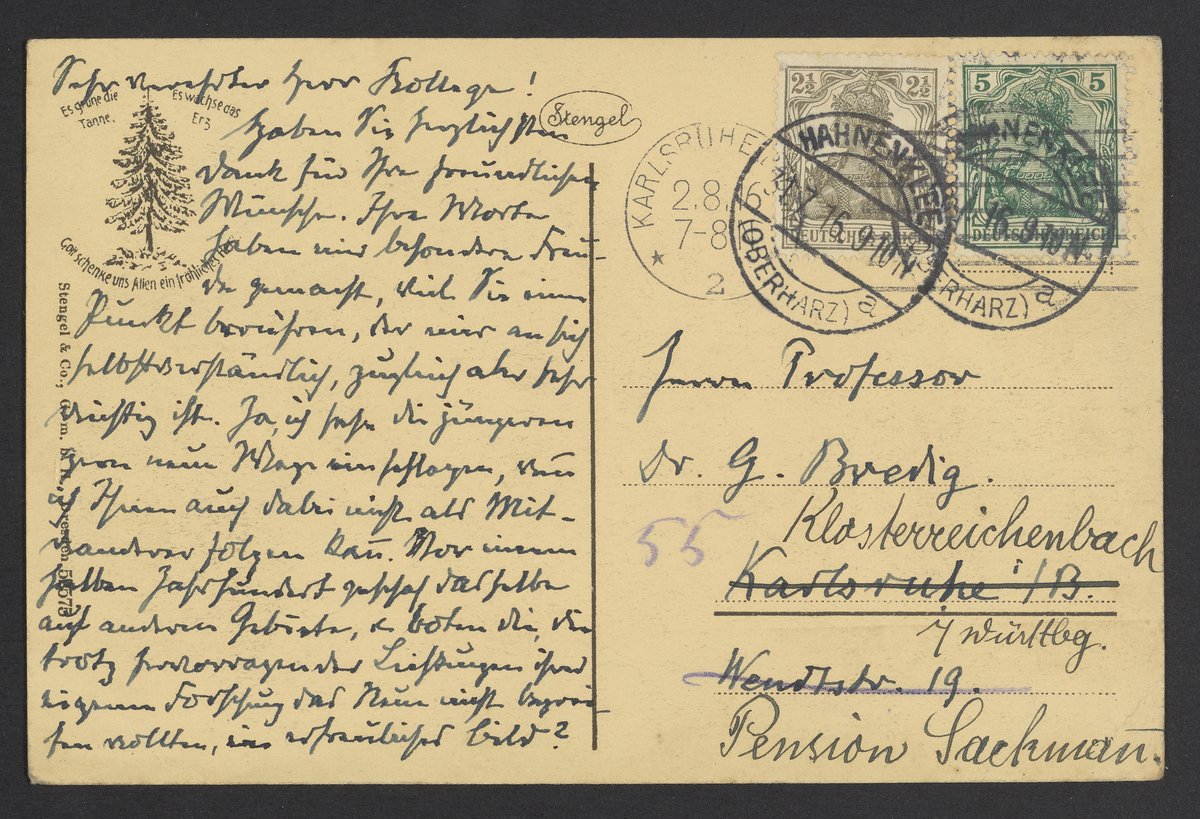 Sehr verehrter Herr Kollege!
Haben Sie herzlichsten
Dank für Ihre freundlichen
Wünsche. Ihre Worte
haben mir besondere Freu-
de gemacht, weil Sie einen
Punkt berühren, der mir an sich
selbstverständlich, zugleich aber sehr
wichtig ist. Ja, ich sehe die jüngeren
gern neue Wege einschlagen, wenn
ich Ihnen auch dabei nicht als Mit-
wanderer folgen kann. Vor einem
halben Jahrhundert geschah dasselbe
auf anderem Gebiete, u. boten die, die
trotz hervorragender Leistungen ihrer
eigenen Forschung das Neue nicht begrei-
fen wollten, ein erfreuliches Bild?
Es grüne die
Tanne.
Es wachse das
Erz
Gott schenke uns Allen ein fröhliches Herz
Stengel & Co., G. m. b. H., Dresden
Stengel
KARLSRUHE
2.8.16
7-8
2
2½ 2½
DEUTSCHES REICH
5 5
DEUTSCHES REICH
HAHNENKLEE
16.9-10N
(OBERHARZ) a
HAHNENKLEE
16.9-10N
(OBERHARZ) a
Herrn Professor
Dr. G. Bredig.
Klosterreichenbach
55
Karlsruhe i/B.
i/Württbg.
Wendtstr. 19.
Pension Sackmann.